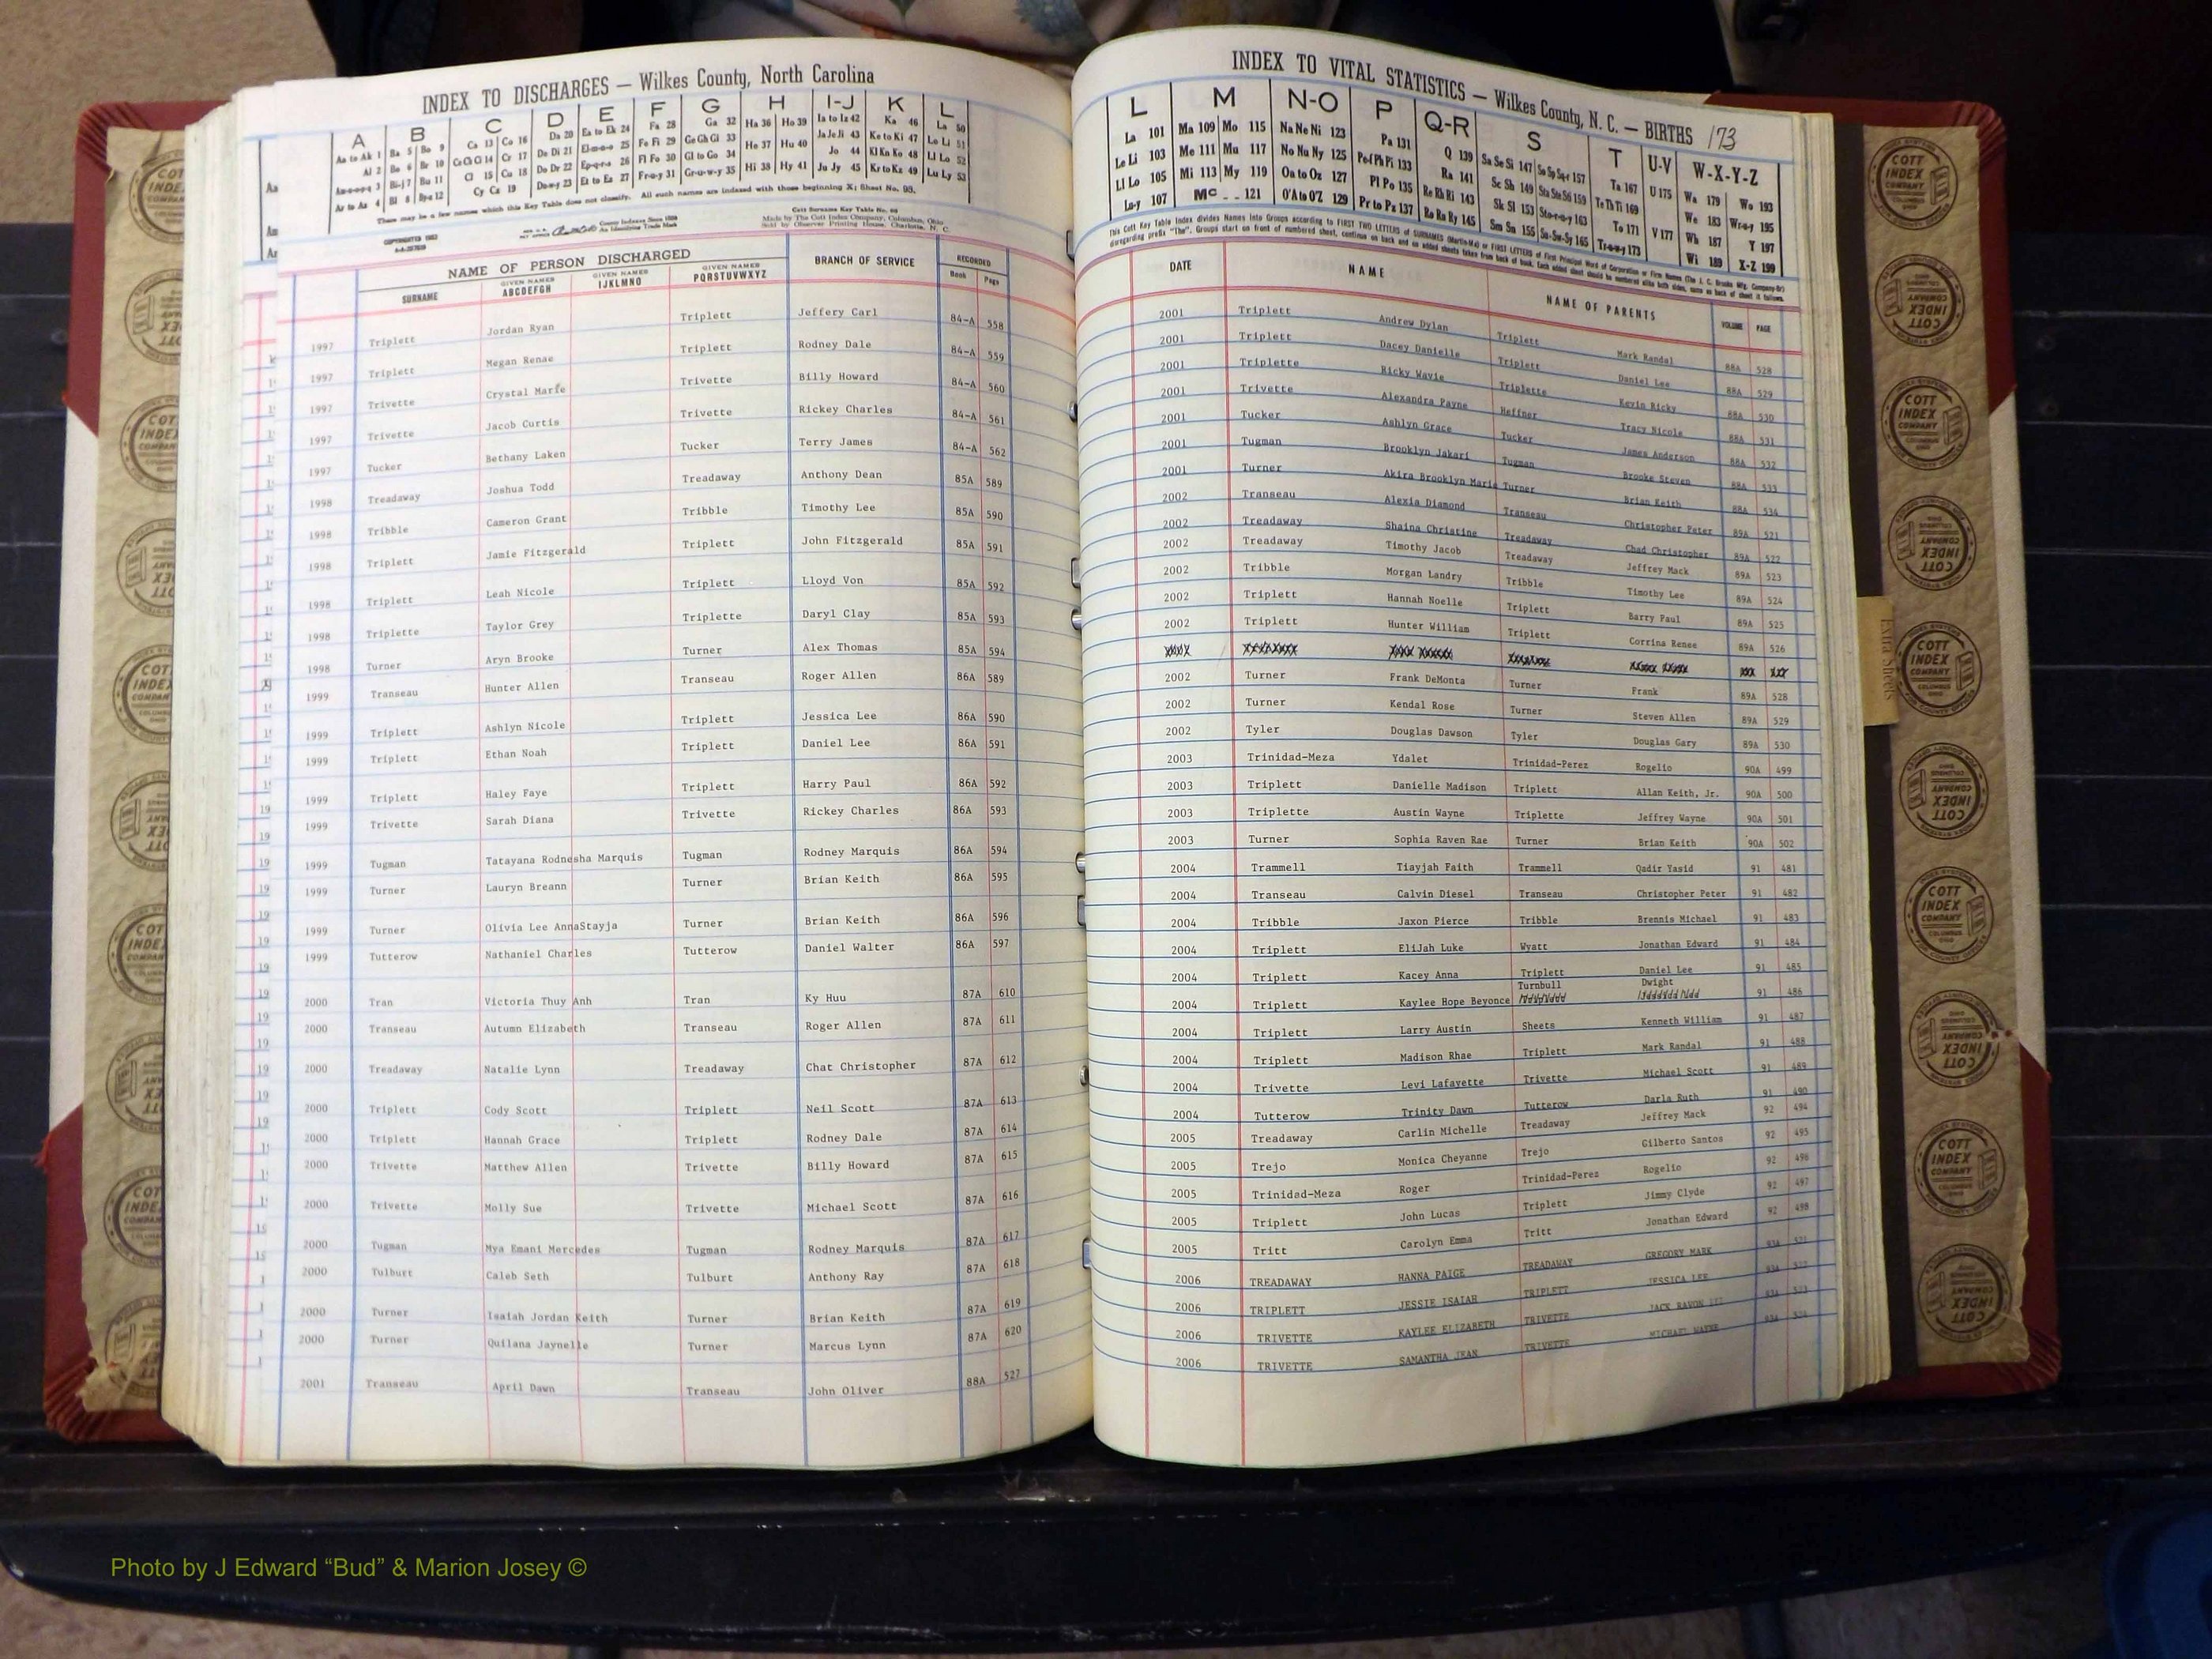 INDEX TO DISCHARGES — Wilkes County, North Carolina
A B C D E F G H I-J K L
Aa to Ak 1 Ba 5 Be 9 Ca 13 Co 16 Da 20 Ea to Ek 24 Fa 28 Ga 32 Ha 36 Ho 39 Ia to Iz 42 Ka 46 La 50
Al 2 Be 6 Br 10 Ce Ch Ci 14 Cr 17 De Di 21 El-m-n-o 25 Fe Fi 29 Ge Gh Gi 33 He 37 Hu 40 Ja Je Ji 43 Ke to Ki 47 Le Li 51
Am-n-o-p-q 3 Bi-j 7 Bu 11 Cl 15 Cu 18 Do Dr 22 Ep-q-r-s 26 Fl Fo 30 Gl to Go 34 Hi 38 Hy 41 Jo 44 Kl Kn Ko 48 Ll Lo 52
Ar to Az 4 Bl 8 By-z 12 Cy Cz 19 Du-w-y 23 Et to Ez 27 Fr-u-y 31 Gr-u-w-y 35 Ju Jy 45 Kr to Kz 49 Lu Ly 53
There may be a few names which this Key Table does not classify. All such names are indexed with those beginning X: Sheet No. 98.
Cott Surname Key Table No. 98
Made by The Cott Index Company, Columbus, Ohio
Sold by Observer Printing House, Charlotte, N. C.
NAME OF PERSON DISCHARGED BRANCH OF SERVICE RECORDED
SURNAME GIVEN NAMES ABCDEFGH GIVEN NAMES IJKLMNO GIVEN NAMES PQRSTUVWXYZ Book Page
1997 Triplett Jordan Ryan Triplett Jeffery Carl 84-A 558
1997 Triplett Megan Renae Triplett Rodney Dale 84-A 559
1997 Trivette Crystal Marfe Trivette Billy Howard 84-A 560
1997 Trivette Jacob Curtis Trivette Rickey Charles 84-A 561
1997 Tucker Bethany Laken Tucker Terry James 84-A 562
1998 Treadaway Joshua Todd Treadaway Anthony Dean 85A 589
1998 Tribble Cameron Grant Tribble Timothy Lee 85A 590
1998 Triplett Jamie Fitzgerald Triplett John Fitzgerald 85A 591
1998 Triplett Leah Nicole Triplett Lloyd Von 85A 592
1998 Triplette Taylor Grey Triplette Daryl Clay 85A 593
1998 Turner Aryn Brooke Turner Alex Thomas 85A 594
1999 Transeau Hunter Allen Transeau Roger Allen 86A 589
1999 Triplett Ashlyn Nicole Triplett Jessica Lee 86A 590
1999 Triplett Ethan Noah Triplett Daniel Lee 86A 591
1999 Triplett Haley Faye Triplett Harry Paul 86A 592
1999 Trivette Sarah Diana Trivette Rickey Charles 86A 593
1999 Tugman Tatayana Rodnesha Marquis Tugman Rodney Marquis 86A 594
1999 Turner Lauryn Breann Turner Brian Keith 86A 595
1999 Turner Olivia Lee AnnaStayja Turner Brian Keith 86A 596
1999 Tutterow Nathaniel Charles Tutterow Daniel Walter 86A 597
2000 Tran Victoria Thuy Anh Tran Ky Huu 87A 610
2000 Transeau Autumn Elizabeth Transeau Roger Allen 87A 611
2000 Treadaway Natalie Lynn Treadaway Chat Christopher 87A 612
2000 Triplett Cody Scott Triplett Neil Scott 87A 613
2000 Triplett Hannah Grace Triplett Rodney Dale 87A 614
2000 Trivette Matthew Allen Trivette Billy Howard 87A 615
2000 Trivette Molly Sue Trivette Michael Scott 87A 616
2000 Tugman Mya Emani Mercedes Tugman Rodney Marquis 87A 617
2000 Tulburt Caleb Seth Tulburt Anthony Ray 87A 618
2000 Turner Isaiah Jordan Keith Turner Brian Keith 87A 619
2000 Turner Quilana Jaynelle Turner Marcus Lynn 87A 620
2001 Transeau April Dawn Transeau John Oliver 88A 527
INDEX TO VITAL STATISTICS — Wilkes County, N. C. — BIRTHS 173
L M N-O P Q-R S T U-V W-X-Y-Z
La 101 Ma 109 Mo 115 Na Ne Ni 123 Pa 131 Q 139 Sa Se Si 147 So Sp Sq-r 157 Ta 167 U 175 Wa 179 Wo 193
Le Li 103 Me 111 Mu 117 No Nu Ny 125 Pe-f Ph Pi 133 Ra 141 Sc Sh 149 Sta Ste Sti 159 Te Th Ti 169 We 183 Wr-u-y 195
Ll Lo 105 Mi 113 My 119 Oa to Oz 127 Pl Po 135 Re Rh Ri 143 Sk Sl 153 Sto-r-u-y 163 To 171 V 177 Wh 187 Y 197
Lu-y 107 Mc 121 O'A to O'Z 129 Pr to Pz 137 Ro Ru Ry 145 Sm Sn 155 Su-Sw-Sy 165 Tr-u-w-y 173 Wi 189 X-Z 199
DATE NAME NAME OF PARENTS VOLUME PAGE
2001 Triplett Andrew Dylan Triplett Mark Randal 88A 528
2001 Triplett Dacey Danielle Triplett Daniel Lee 88A 529
2001 Triplette Ricky Wavie Triplette Kevin Ricky 88A 530
2001 Trivette Alexandra Payne Heffner Tracy Nicole 88A 531
2001 Tucker Ashlyn Grace Tucker James Anderson 88A 532
2001 Tugman Brooklyn Jakari Tugman Brooke Steven 88A 533
2001 Turner Akira Brooklyn Marie Turner Brian Keith 88A 534
2002 Transeau Alexia Diamond Transeau Christopher Peter 89A 521
2002 Treadaway Shaina Christine Treadaway Chad Christopher 89A 522
2002 Treadaway Timothy Jacob Treadaway Jeffrey Mack 89A 523
2002 Tribble Morgan Landry Tribble Timothy Lee 89A 524
2002 Triplett Hannah Noelle Triplett Barry Paul 89A 525
2002 Triplett Hunter William Triplett Corrina Renee 89A 526
2002 Turner Frank DeMonta Turner Frank 89A 528
2002 Turner Kendal Rose Turner Steven Allen 89A 529
2002 Tyler Douglas Dawson Tyler Douglas Gary 89A 530
2003 Trinidad-Meza Ydalet Trinidad-Perez Rogelio 90A 499
2003 Triplett Danielle Madison Triplett Allan Keith, Jr. 90A 500
2003 Triplette Austin Wayne Triplette Jeffrey Wayne 90A 501
2003 Turner Sophia Raven Rae Turner Brian Keith 90A 502
2004 Trammell Tiayjah Faith Trammell Qadir Yasid 91 481
2004 Transeau Calvin Diesel Transeau Christopher Peter 91 482
2004 Tribble Jaxon Pierce Tribble Brennis Michael 91 483
2004 Triplett EliJah Luke Wyatt Jonathan Edward 91 484
2004 Triplett Kacey Anna Triplett Daniel Lee 91 485
2004 Triplett Kaylee Hope Beyonce Turnbull Dwight 91 486
2004 Triplett Larry Austin Sheets Kenneth William 91 487
2004 Triplett Madison Rhae Triplett Mark Randal 91 488
2004 Trivette Levi Lafayette Trivette Michael Scott 91 489
2004 Tutterow Trinity Dawn Tutterow Darla Ruth 91 490
2005 Treadaway Carlin Michelle Treadaway Jeffrey Mack 92 494
2005 Trejo Monica Cheyanne Trejo Gilberto Santos 92 495
2005 Trinidad-Meza Roger Trinidad-Perez Rogelio 92 496
2005 Triplett John Lucas Triplett Jimmy Clyde 92 497
2005 Tritt Carolyn Emma Tritt Jonathan Edward 92 498
2006 TREADAWAY HANNA PAIGE TREADAWAY GREGORY MARK 93A 521
2006 TRIPLETT JESSIE ISAIAH TRIPLETT JESSICA LEE 93A 522
2006 TRIVETTE KAYLEE ELIZABETH TRIVETTE JACK RAVON III 93A 523
2006 TRIVETTE SAMANTHA JEAN TRIVETTE MICHAEL WAYNE 93A 524
Extra Sheets
COTT INDEX COMPANY COLUMBUS OHIO
Photo by J Edward “Bud” & Marion Josey ©